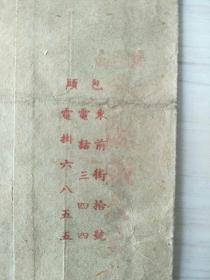 包頭
東前街拾號
電話三四四
電掛六八五五